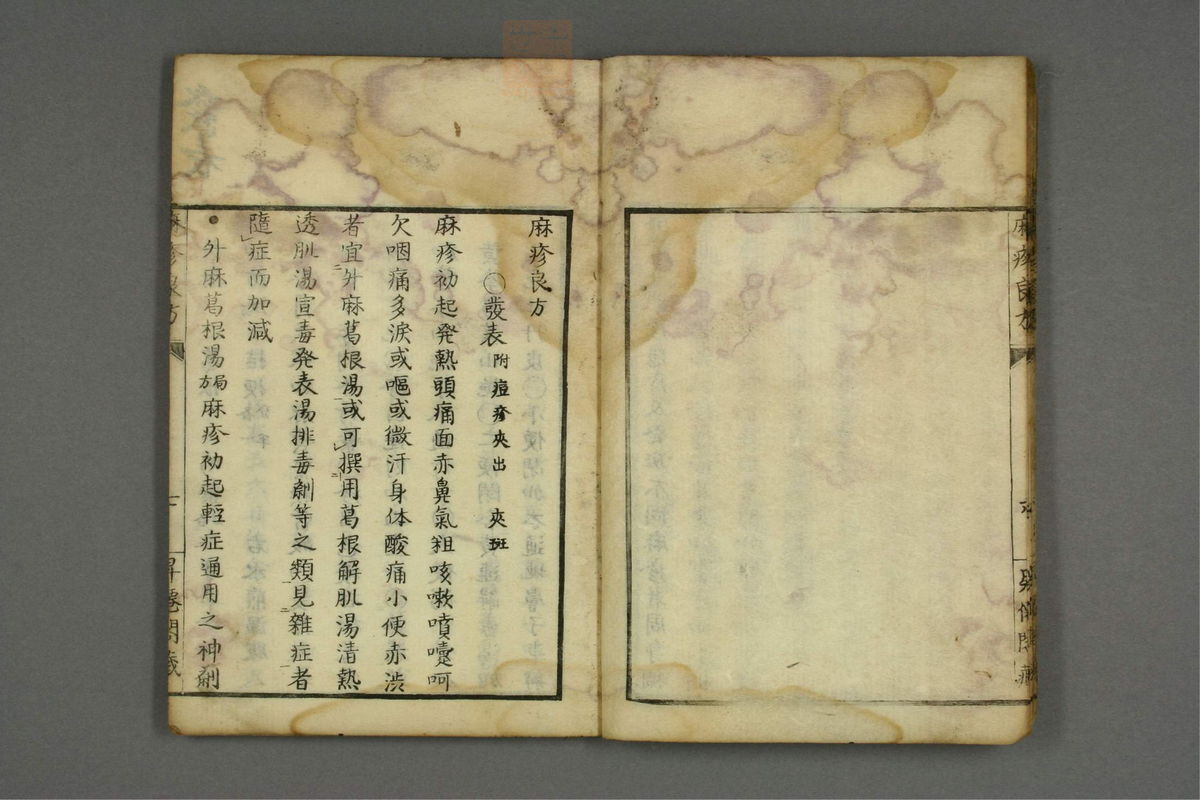 麻疹良方
麻疹良方
〇發表附痘疹夾出 夾斑
麻疹初起発熱頭痛面赤鼻氣粗咳嗽噴嚔呵
欠咽痛多淚或嘔或微汗身体酸痛小便赤渋
者宜升麻葛根湯或可撰用葛根解肌湯清熱
透肌湯宣毒発表湯排毒劑等之類見雜症者
隨症而加減
升麻葛根湯局方麻疹初起輕症通用之神劑
麻疹良方